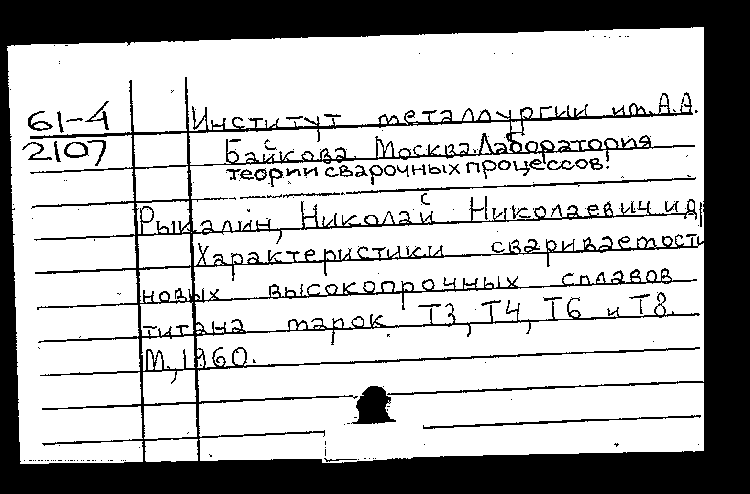 61-4
2107
Институт металлургии им. А.А.
Байкова. Москва. Лаборатория
теории сварочных процессов.
Рыкалин, Николай Николаевич и др
Характеристики свариваемости
новых высокопрочных сплавов
титана марок Т3, Т4, Т6 и Т8.
М., 1960.